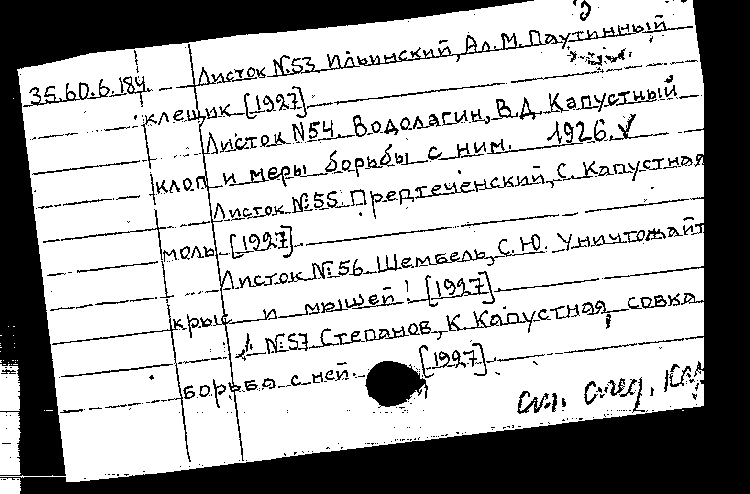 3
35.60.6.184. Листок №53. Ильинский, Ал. М. Паутинный
клещик [1927].
Листок №54. Водолагин, В.Д. Капустный
клоп и меры борьбы с ним. 1926. ✓
Листок №55. Предтеченский, С. Капустная
моль. [1927].
Листок №56. Шембель, С.Ю. Уничтожайт
крыс и мышей! [1927].
Л. №57. Степанов, К. Капустная совка,
борьба с ней. [1927].
см. след. кар